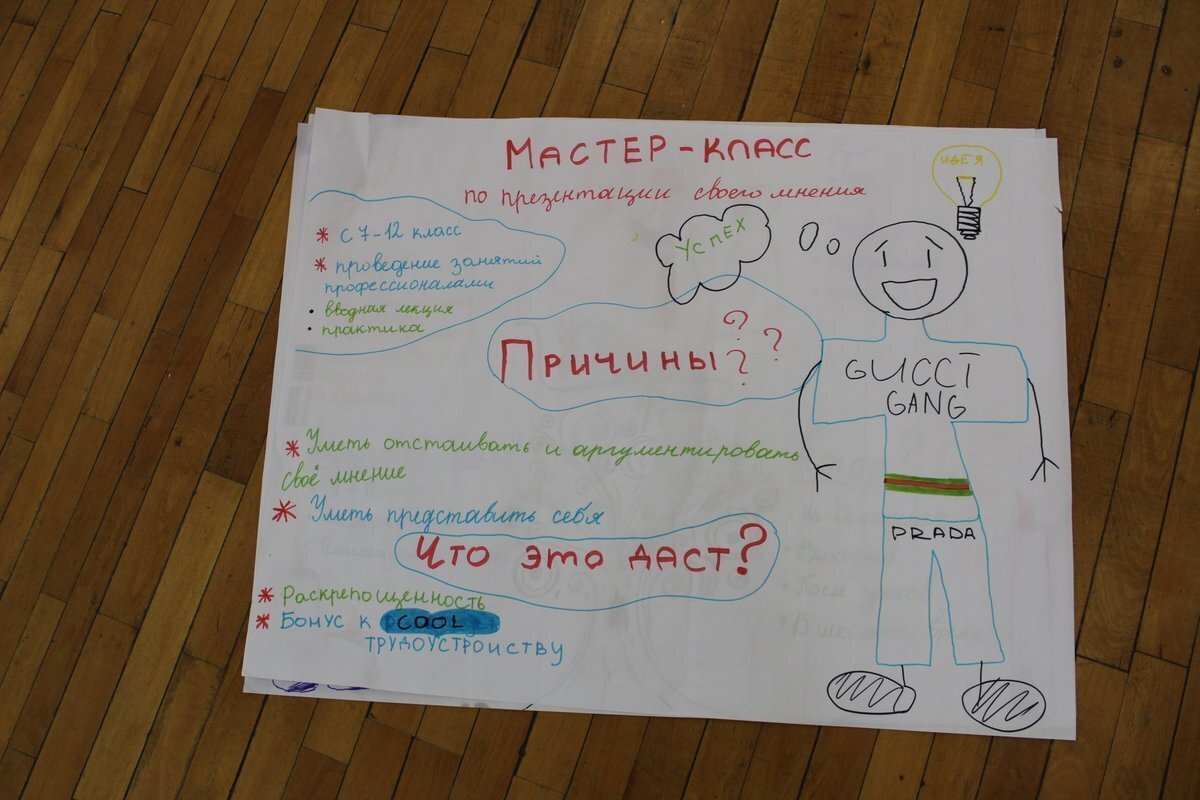 МАСТЕР-КЛАСС
по презентации своего мнения
ИДЕЯ
* С 7-12 класс
* проведение занятий
профессионалами
• вводная лекция
• практика
УСПЕХ
ПРИЧИНЫ???
GUCCI
GANG
* Уметь отстаивать и аргументировать
своё мнение
* Уметь представить себя
PRADA
ЧТО ЭТО ДАСТ?
* Раскрепощенность
* Бонус к COOL
ТРУДОУСТРОИСТВУ